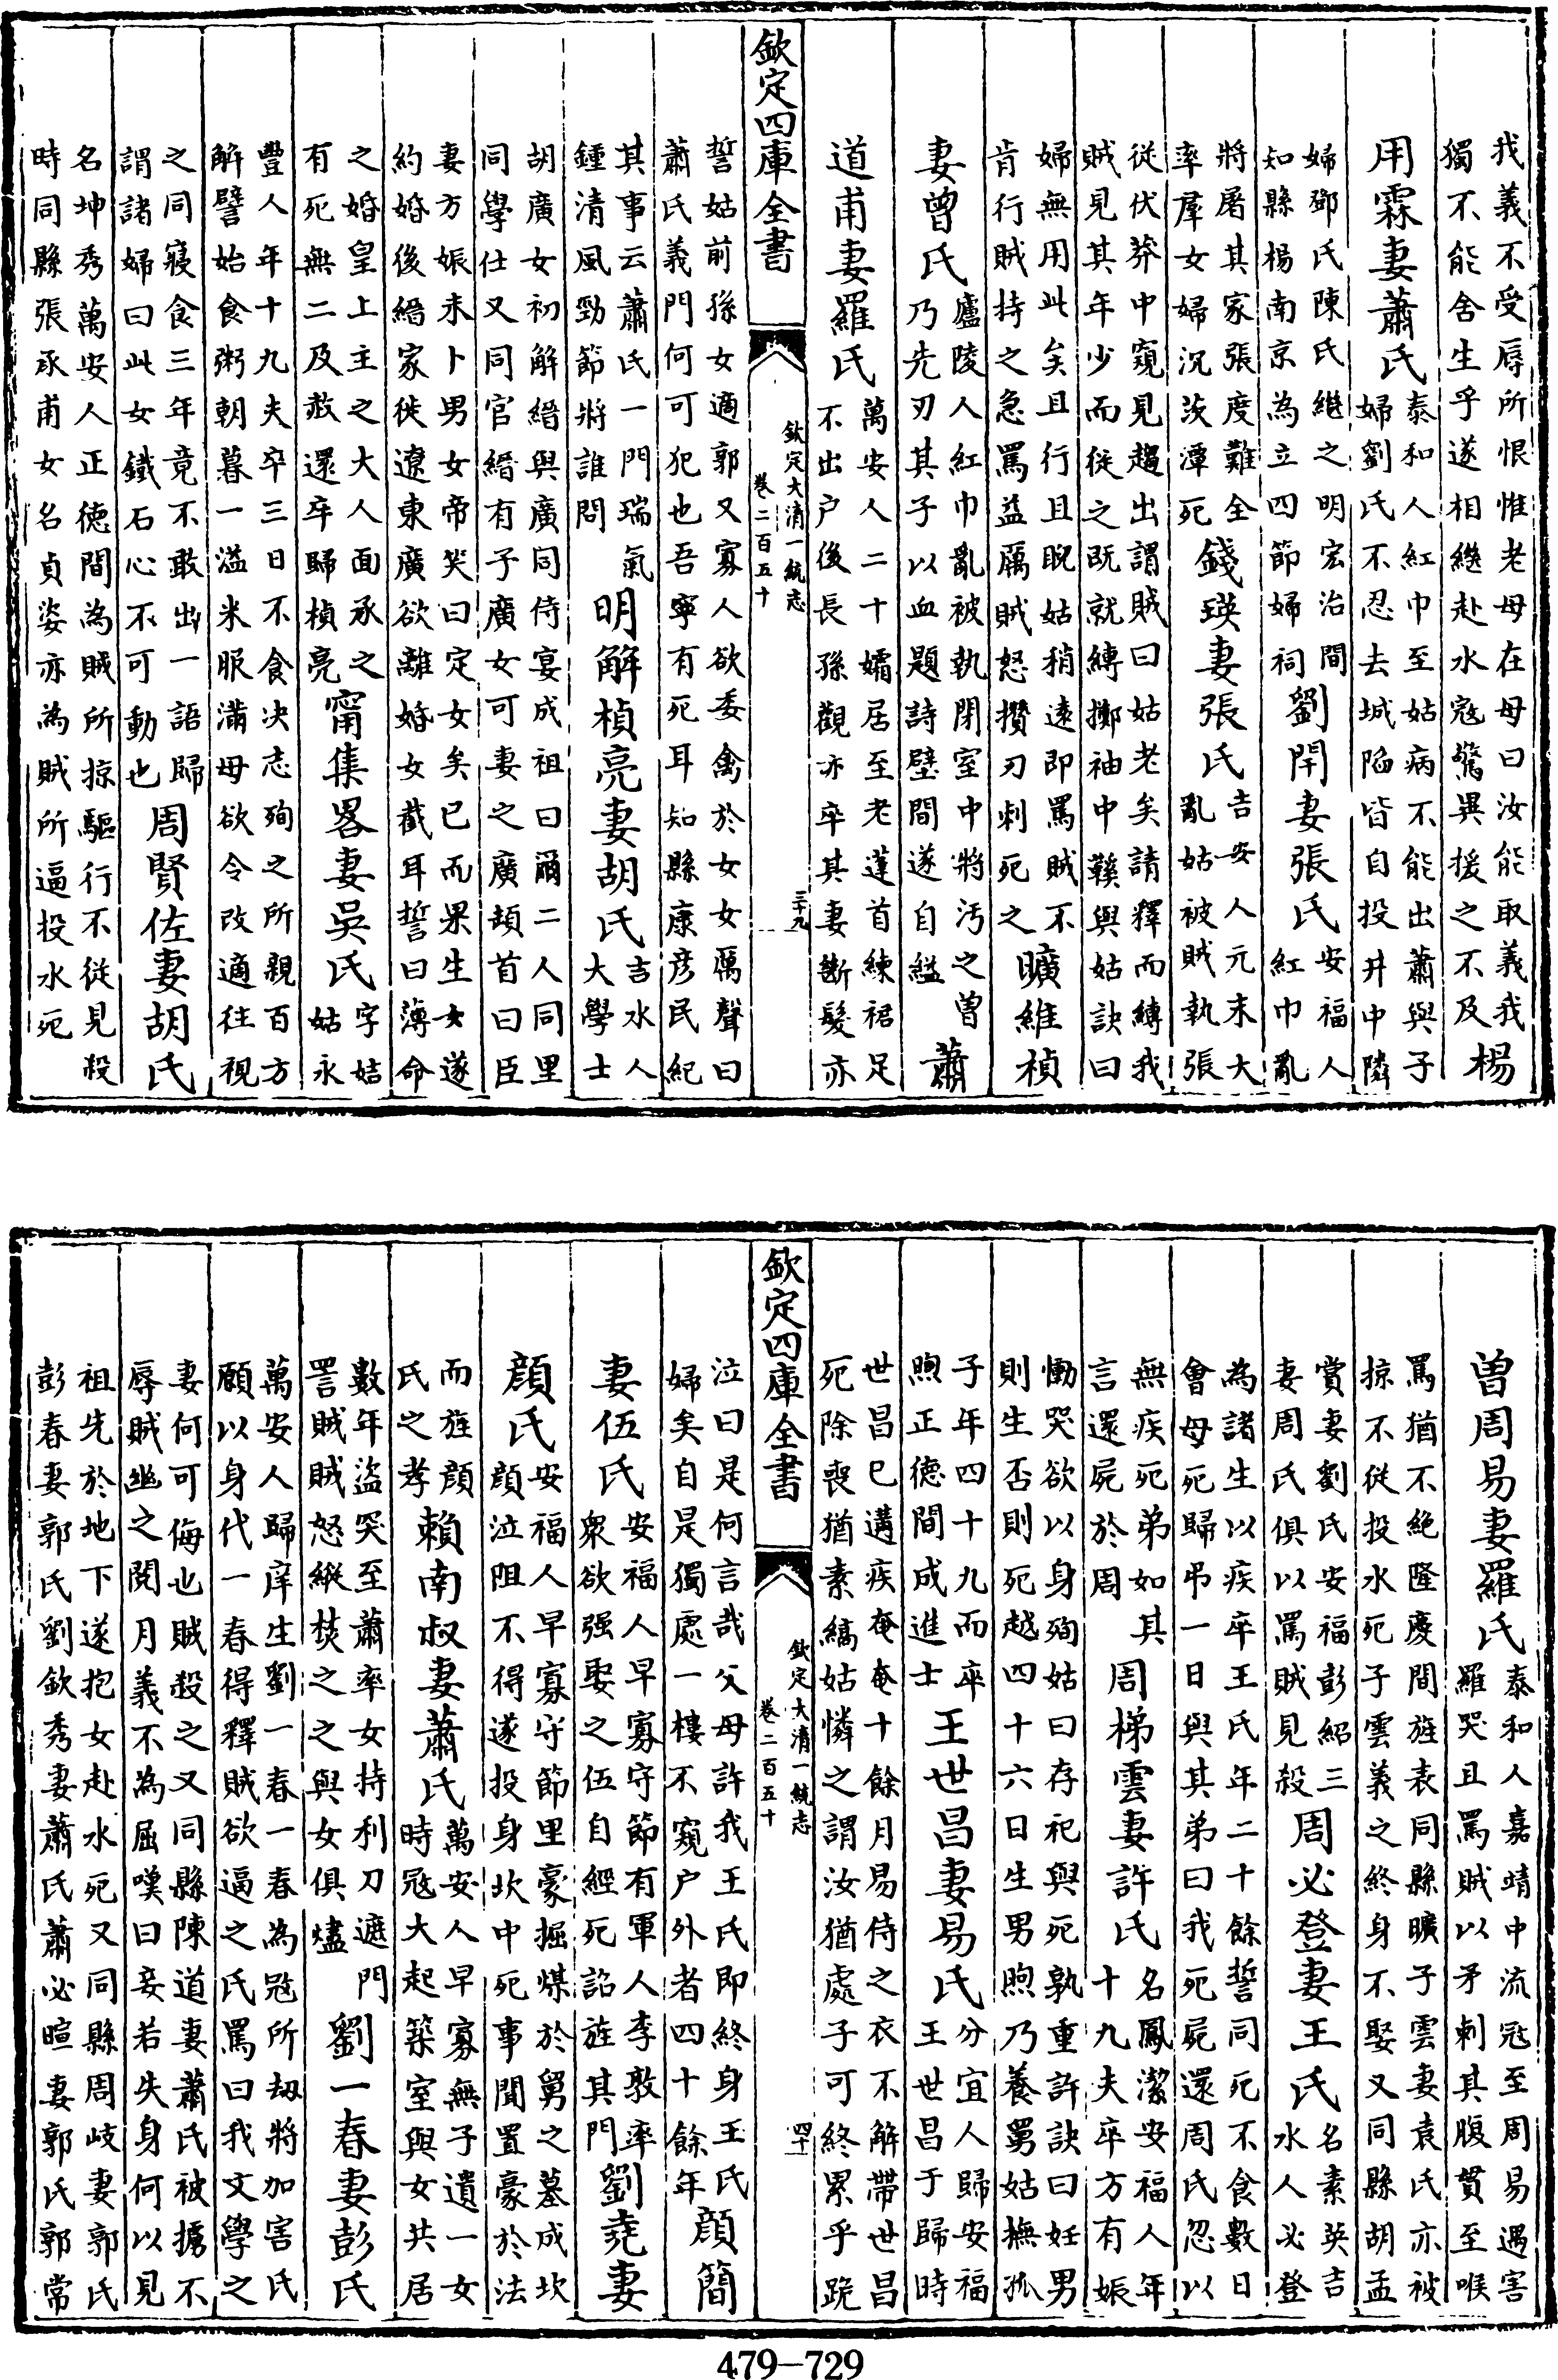 我義不受辱所恨惟老母在母曰汝能取義我
獨不能舍生乎遂相繼赴水寇驚異援之不及
楊
用霖妻蕭氏
泰和人紅巾至姑病不能出蕭與子
婦劉氏不忍去城陷皆自投井中隣
婦鄧氏陳氏繼之明宏治間
知縣楊南京為立四節婦祠
劉閈妻張氏
安福人
紅巾亂
將屠其家張度難全
率羣女婦沉茨潭死
錢瑛妻張氏
吉安人元末大
亂姑被賊執張
從伏莽中窺見趨出謂賊曰姑老矣請釋而縛我
賊見其年少而從之既就縛擲袖中鞵與姑訣曰
婦無用此矣且行且睨姑稍遠即罵賊不
肯行賊持之急罵益厲賊怒攢刃刺死之
曠維楨
妻曾氏
廬陵人紅巾亂被執閉室中將汚之曾
乃先刃其子以血題詩壁間遂自縊
蕭
道甫妻羅氏
萬安人二十孀居至老蓬首練裙足
不出户後長孫觀亦卒其妻斷髮亦
欽定四庫全書
欽定大清一統志
卷二百五十
三十九
誓姑前孫女適郭又寡人欲委禽於女女厲聲曰
蕭氏義門何可犯也吾寧有死耳知縣康彦民紀
其事云蕭氏一門瑞氣
鍾清風勁節將誰問
明解楨亮妻胡氏
吉水人
大學士
胡廣女初解縉與廣同侍宴成祖曰爾二人同里
同學仕又同官縉有子廣女可妻之廣頓首曰臣
妻方娠未卜男女帝笑曰定女矣已而果生女遂
約婚後縉家徙遼東廣欲離婚女截耳誓曰薄命
之婚皇上主之大人面承之
有死無二及赦還卒歸楨亮
甯集畧妻吳氏
字姞
姑永
豐人年十九夫卒三日不食决志殉之所親百方
解譬始食粥朝暮一溢米服滿母欲令改適往視
之同寝食三年竟不敢出一語歸
謂諸婦曰此女鐵石心不可動也
周賢佐妻胡氏
名坤秀萬安人正德間為賊所掠驅行不從見殺
時同縣張承甫女名貞姿亦為賊所逼投水死
曾周易妻羅氏
泰和人嘉靖中流寇至周易遇害
羅哭且罵賊以矛刺其腹貫至喉
罵猶不絶隆慶間旌表同縣曠子雲妻袁氏亦被
掠不從投水死子雲義之終身不娶又同縣胡孟
賞妻劉氏安福彭紹三
妻周氏俱以罵賊見殺
周必登妻王氏
名素英吉
水人必登
為諸生以疾卒王氏年二十餘誓同死不食數日
會母死歸弔一日與其弟曰我死屍還周氏忽以
無疾死弟如其
言還屍於周
周梯雲妻許氏
名鳳潔安福人年
十九夫卒方有娠
慟哭欲以身殉姑曰存祀與死孰重許訣曰妊男
則生否則死越四十六日生男煦乃養舅姑撫孤
子年四十九而卒
煦正德間成進士
王世昌妻易氏
分宜人歸安福
王世昌于歸時
世昌已遘疾奄奄十餘月易侍之衣不解帶世昌
死除喪猶素縞姑憐之謂汝猶處子可終累乎跪
欽定四庫全書
欽定大清一統志
卷二百五十
四十
泣曰是何言哉父母許我王氏即終身王氏
婦矣自是獨處一樓不窺户外者四十餘年
顔簡
妻伍氏
安福人早寡守節有軍人李敎率
衆欲强娶之伍自經死詔旌其門
劉堯妻
顔氏
安福人早寡守節里豪掘煤於舅之墓成坎
顔泣阻不得遂投身坎中死事聞置豪於法
而旌顔
氏之孝
賴南叔妻蕭氏
萬安人早寡無子遺一女
時寇大起築室與女共居
數年盜突至蕭率女持利刀遮門
詈賊賊怒縱焚之之與女俱燼
劉一春妻彭氏
萬安人歸庠生劉一春一春為寇所刼將加害氏
願以身代一春得釋賊欲逼之氏罵曰我文學之
妻何可侮也賊殺之又同縣陳道妻蕭氏被擄不
辱賊幽之閱月義不為屈嘆曰妾若失身何以見
祖先於地下遂抱女赴水死又同縣周岐妻郭氏
彭春妻郭氏劉欽秀妻蕭氏蕭必暄妻郭氏郭常
479—729